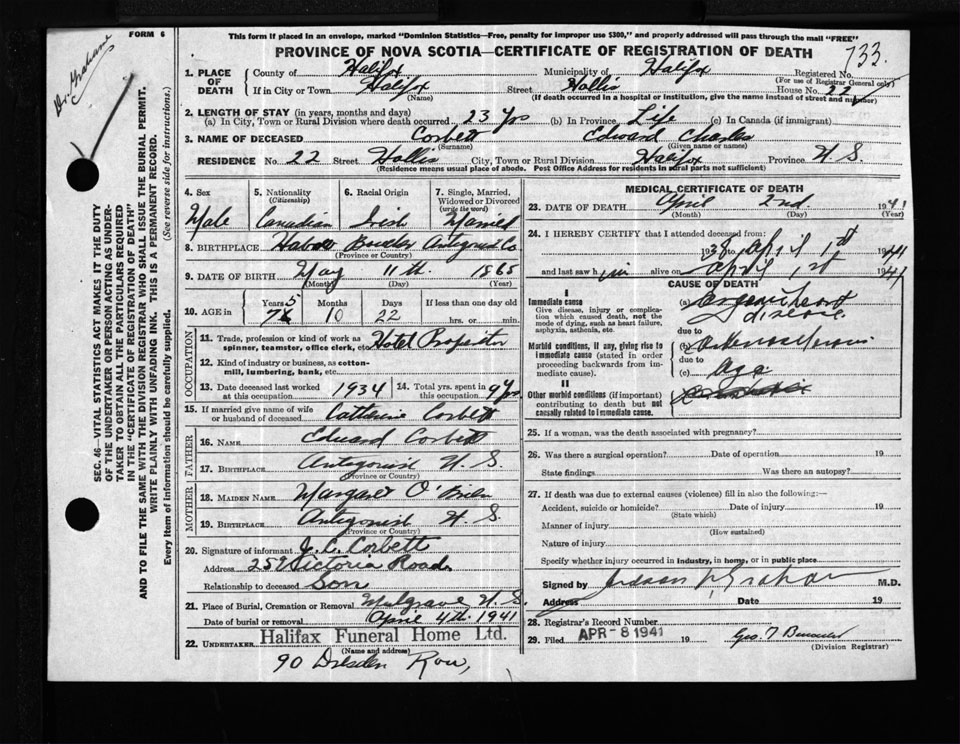 FORM 6
Dr. Graham
This form if placed in an envelope, marked "Dominion Statistics—Free, penalty for improper use $300," and properly addressed will pass through the mail "FREE"
PROVINCE OF NOVA SCOTIA—CERTIFICATE OF REGISTRATION OF DEATH
733.
1. PLACE OF DEATH County of Halifax Municipality of Halifax Registered No.
(For use of Registrar General only)
If in City or Town Halifax Street Hollis House No. 22
(Name) (If death occurred in a hospital or institution, give the name instead of street and number)
2. LENGTH OF STAY (in years, months and days)
(a) In City, Town or Rural Division where death occurred 23 Yrs (b) In Province Life (c) In Canada (if immigrant)
3. NAME OF DECEASED Corbett Edward Charles
(Surname) (Given name or names)
RESIDENCE No. 22 Street Hollis City, Town or Rural Division Halifax Province N.S.
(Residence means usual place of abode. Post Office Address for residents in rural parts not sufficient)
SEC. 46—VITAL STATISTICS ACT MAKES IT THE DUTY
OF THE UNDERTAKER OR PERSON ACTING AS UNDER-
TAKER TO OBTAIN ALL THE PARTICULARS REQUIRED
IN THE "CERTIFICATE OF REGISTRATION OF DEATH"
AND TO FILE THE SAME WITH THE DIVISION REGISTRAR WHO SHALL ISSUE THE BURIAL PERMIT.
WRITE PLAINLY WITH UNFADING INK. THIS IS A PERMANENT RECORD.
Every item of information should be carefully supplied. (See reverse side for instructions.)
4. Sex 5. Nationality 6. Racial Origin 7. Single, Married,
(Citizenship) Widowed or Divorced
(write the word)
Male Canadian Irish Married
8. BIRTHPLACE Boucher Antigonish Co
(Province or Country)
9. DATE OF BIRTH May 11th 1865
(Month) (Day) (Year)
10. AGE in Years Months Days If less than one day old
75 10 22 hrs. or min.
OCCUPATION
11. Trade, profession or kind of work as Hotel Proprietor
spinner, teamster, office clerk, etc.
12. Kind of industry or business, as cotton-
mill, lumbering, bank, etc.
13. Date deceased last worked at this occupation 1934 14. Total yrs. spent in this occupation 9 Yrs
15. If married give name of wife or husband of deceased Catherine Corbett
FATHER
16. NAME Edward Corbett
17. BIRTHPLACE Antigonish N.S.
(Province or Country)
MOTHER
18. MAIDEN NAME Margaret O'Brien
19. BIRTHPLACE Antigonish N.S.
(Province or Country)
20. Signature of informant J. C. Corbett
Address 259 Victoria Road.
Relationship to deceased Son
21. Place of Burial, Cremation or Removal Mulgrave, N.S.
Date of burial or removal April 4th. 1941
22. UNDERTAKER Halifax Funeral Home Ltd.
(Name and address)
90 Dresden Row,
MEDICAL CERTIFICATE OF DEATH
23. DATE OF DEATH April 2nd 1941
(Month) (Day) (Year)
24. I HEREBY CERTIFY that I attended deceased from:
1938 to April 1st 1941
and last saw him alive on April 1st 1941
CAUSE OF DEATH
I
Immediate cause
Give disease, injury or complication which caused death, not the mode of dying, such as heart failure, asphyxia, asthenia, etc.
(a) Organic heart disease
due to
Morbid conditions, if any, giving rise to immediate cause (stated in order proceeding backwards from immediate cause).
(b) Arteriosclerosis
due to
(c) age
II
Other morbid conditions (if important) contributing to death but not causally related to immediate cause.
25. If a woman, was the death associated with pregnancy?
26. Was there a surgical operation? Date of operation 19
State findings Was there an autopsy?
27. If death was due to external causes (violence) fill in also the following:—
Accident, suicide or homicide? Date of injury 19
(State which)
Manner of injury
(How sustained)
Nature of injury
Specify whether injury occurred in industry, in home, or in public place
Signed by Judson Graham M.D.
Address Date 19
28. Registrar's Record Number
29. Filed APR - 8 1941 19
Geo. T
(Division Registrar)